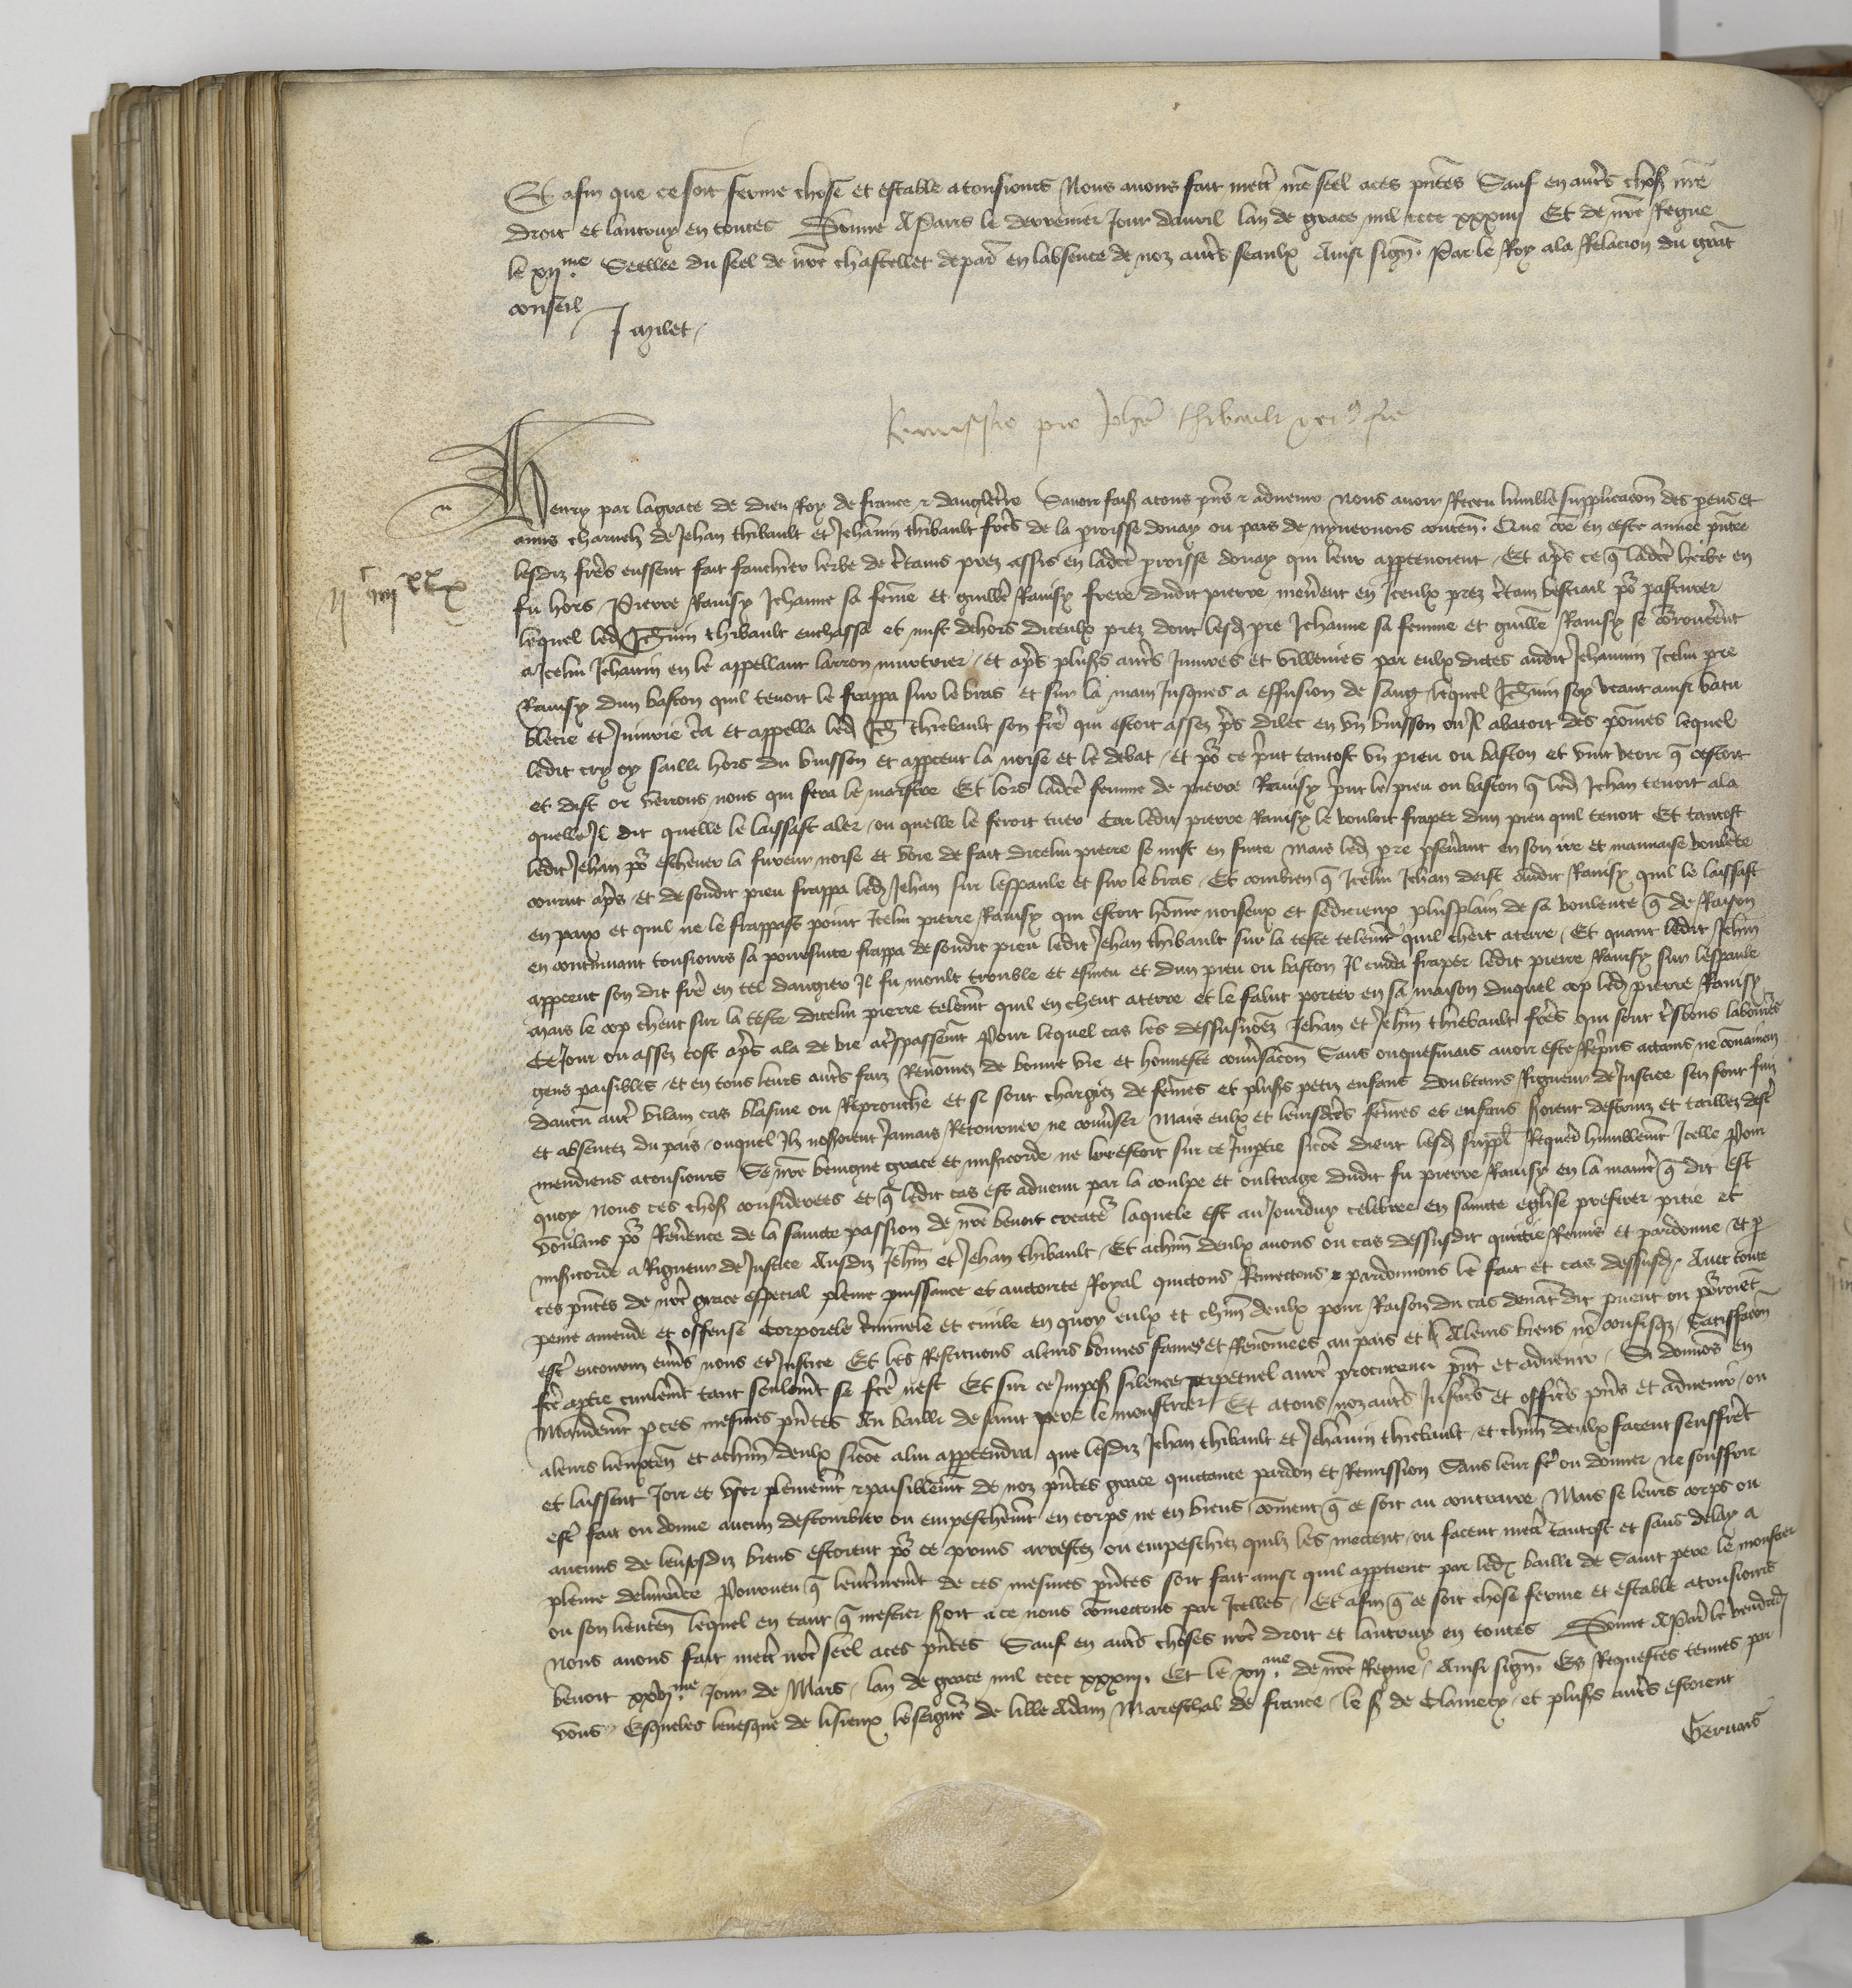 Et afin que ce soit ferme chose et estable a tousiours Nous auons fait mettr nre seel a ces pntes Sauf en autrs choses nre
droit et lautruy en toutes Donne A Paris le derrenier Jour dauril lan de grace mil cccc xxxiiij Et de nre Regne
le xij me Seellee du seel de nre chastellet de par en labsence de noz autrs seaulx Ainsi sign. Par le Roy a la Relacion du grat
conseil
J Milet
Remissio pro Johe thibault
Henry par la grace de dieu Roy de france & dangletre Sauoir fais a tous pns & aduenir nous auoir Receu lumble supplicacon des parens et
amis charnelz de Jehan thibault et Jehannin thibault frers de la proisse douay ou pais de nyuernois conten. Que coe en ceste annee pnte
lesdiz frers eussent fait fauchier lerbe de crtains prez assis en ladte proisse douay qui leur apptenoient Et aprs ce q ladte herbe en
ij c iiij xx x
fu hors Pierre Ramsy Jehanne sa feme et guille Ramsy frere dudit pierre menrent en Iceulx prez crtain bestiail por pasturer
lequel led Jehnin thibault enchassa et mist dehors diceulx prez dont lesd pre Jehanne sa femme et guille Ramsy se corroucerent
a Icelui Jehannin en le appellant larron murtrier et aprs plusrs autrs Iniures et villenies par eulx dictes audit Jehannin Icelui pre
Ramsy dun baston quil tenoit le frappa sur le bras et sur la main Jusques a effusion de sang lequel Jehnin soy veant ainsi batu
blecie et Iniurie cria et appella led Jeh thibault son frer qui estoit assez prs dilec en vn buisson ou Il abatoit des pomes lequel
ledit cry oy sailli hors du buisson et apperceut la noise et le debat et por ce print tantost vn pieu ou baston et vint veoir q cestoit
et dist or verrons nous qui sera le maistre Et lors ladte femme de pierre Ramsy print le pieu ou baston q led Jehan tenoit a la
quelle Il dit quelle le laissast aler ou quelle le feroit tuer Car ledit pierre Ramsy le vouloit fraper dun pieu quil tenoit Et tantost
ledit Jehan por eschever la fureur noise et voie de fait dicelui pierre se mist en fuite Mais led pre pseuerant en son ire et mauuaise voulente
courut aprs et de sondit pieu frappa led Jehan sur lespaule et sur le bras Et combien q Icelui Jehan deist audit Ramsy quil le laissast
en paix et quil ne le frappast point Icelui pierre Ramsy qui estoit home noiseux et sedicieux plus plain de sa voulente q de Raison
en continuant tousiours sa poursuite frappa de sondit pieu ledit Jehan thibault sur la teste telemt quil cheit a terre Et quant ledit Jehnin
apperceut son dit frer en tel dangier Il fu moult trouble et esmeu et dun pieu ou baston Il cuida fraper ledit pierre Ramsy sur lespaule
Mais le cop cheut sur la teste dicelui pierre telemt quil en cheut a terre et le falut porter en sa maison duquel cop led pierre Ramsy
Ce Jour ou assez tost aprs ala de vie a trspassemt Pour lequel cas les dessusnomez Jehan et Jehnin thibault frers qui sont trsbons laboures
gens paisibles et en tous leurs autrs faiz Renomez de bonne vie et honneste conursacon Sans onquesmais auoir este Reprins actains ne conuaincuz
daucun autr vilain cas blasme ou Reprouche et se sont chargiez de femes et plusrs petiz enfans doubtans Rigueur de Justice sen sont fuiz
et absentez du pais ouquel Ilz noseroient Jamais Retourner ne conurser Mais eulx et leursdtes femes et enfans seroient et tailliez destr
mendiens a tousiours Se nre benigne grace et misericorde ne sur ce Imptie sicoe dient lesd suppl Requerd humblemt Icelle Pour
quoy nous ces choses considerees et q ledit cas est aduenu par la coulpe et oultrage dudit fu pierre Ramsy en la manir q dit est
voulans por Reurence de la saincte passion de nre benoit creatr laquele est au Jourduy celebree en saincte eglise preferer pitie et
misericorde a Rigueur de Justice Ausdiz Jehnin et Jehan thibault Et a chun deulx auons ou cas dessusdit quictie Remis et pardonne et p
ces pntes de nre grace especial pleine puissance et auctorite Royal quictons Remectons & pardonnons le fait et cas dessusd Auec toute
peine amende et offense Corporele crimnele et ciuile en quoy eulx et chun deulx pour Raison du cas deuant dit peuent ou porroient
estr encouruz enurs nous et Justice Et les Restituons a leurs bonnes fames et Renomees au pais et A leurs biens no confisqz Satisfacon
fce a ptie ciuilemt tant seulemt se fce nest Et sur ce Imposons silence perpetuel a nre procureur pnt et aduenir Si donnos en
Mandemt p ces mesmes pntes Au bailli de saint pere le monstrer Et a tous noz autrs Justicrs et officrs pns et aduenir ou
a leurs lieuxten et a chun deulx sicoe a lui apptendra que lesdiz Jehan thibault et Jehannin thibault et chun deulx facent seuffret
et laissent Joir et vser plenemt & paisiblemt de noz pntes grace quictance pardon et Remission Sans leur fer ou donner ne souffrir
estr fait ou donne aucun destourbier ou empeschemt en corps ne en biens coment q ce soit au contraire Mais se leurs corps ou
aucuns de leursdiz biens estoient por ce prins arrestez ou empeschiez quilz les mectent ou facent mectr tantost et sans delay a
pleine deliurance Pourueu q lenterinemt de ces mesmes pntes soit fait ainsi quil apptient par led bailli de Saint pere le monstrer
ou son lieuten lequel en tant q mestier seroit a ce nous comectons par Icelles Et afin q ce soit chose ferme et estable a tousiours
Nous auons fait mettr nre seel a ces pntes Sauf en autrs choses nre droit et lautruy en toutes Donne A Par le vendredj
benoit xxvj me Jour de Mars lan de grace mil cccc xxxiij. Et le xij me de nre Regne Ainsi sign. Es Requestes tenues par
vous Esqueles leuesque de lisieux le seigneur de lille Adam Mareschal de france le s de Clamecy et plusrs autrs estoient
Geruais